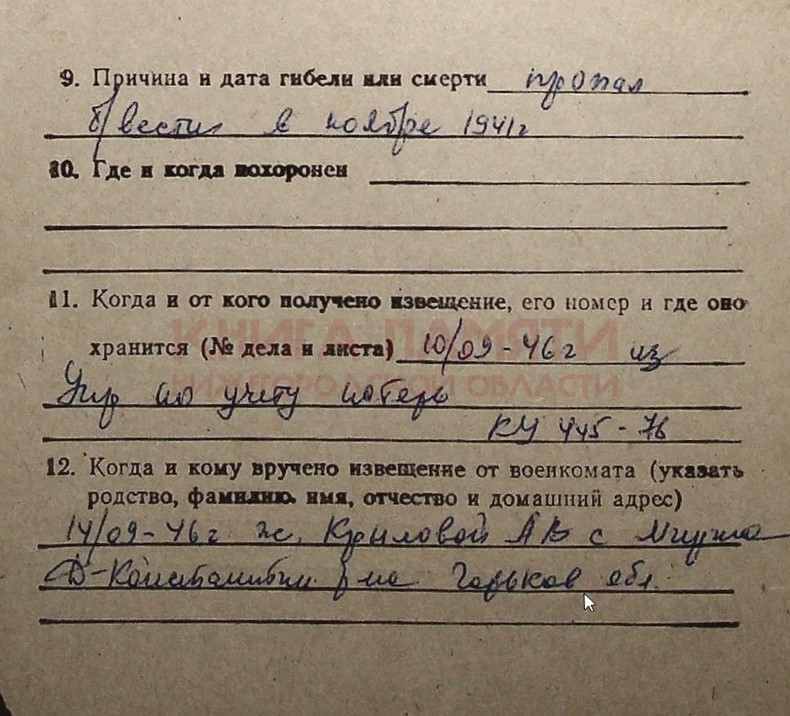 9. Причина и дата гибели или смерти пропал
б/вести в ноябре 1941г
10. Где и когда похоронен
11. Когда и от кого получено извещение, его номер и где оно
КНИГА ПАМЯТИ
хранится (№ дела и листа) 10/09-46г из
НИЖЕГОРОДСКОЙ ОБЛАСТИ
Упр по учету потерь
КУ 445-76
12. Когда и кому вручено извещение от военкомата (указать
родство, фамилию, имя, отчество и домашний адрес)
14/09-46г ж. Крыловой АВ с
Д-Константин р-на Горьков обл.